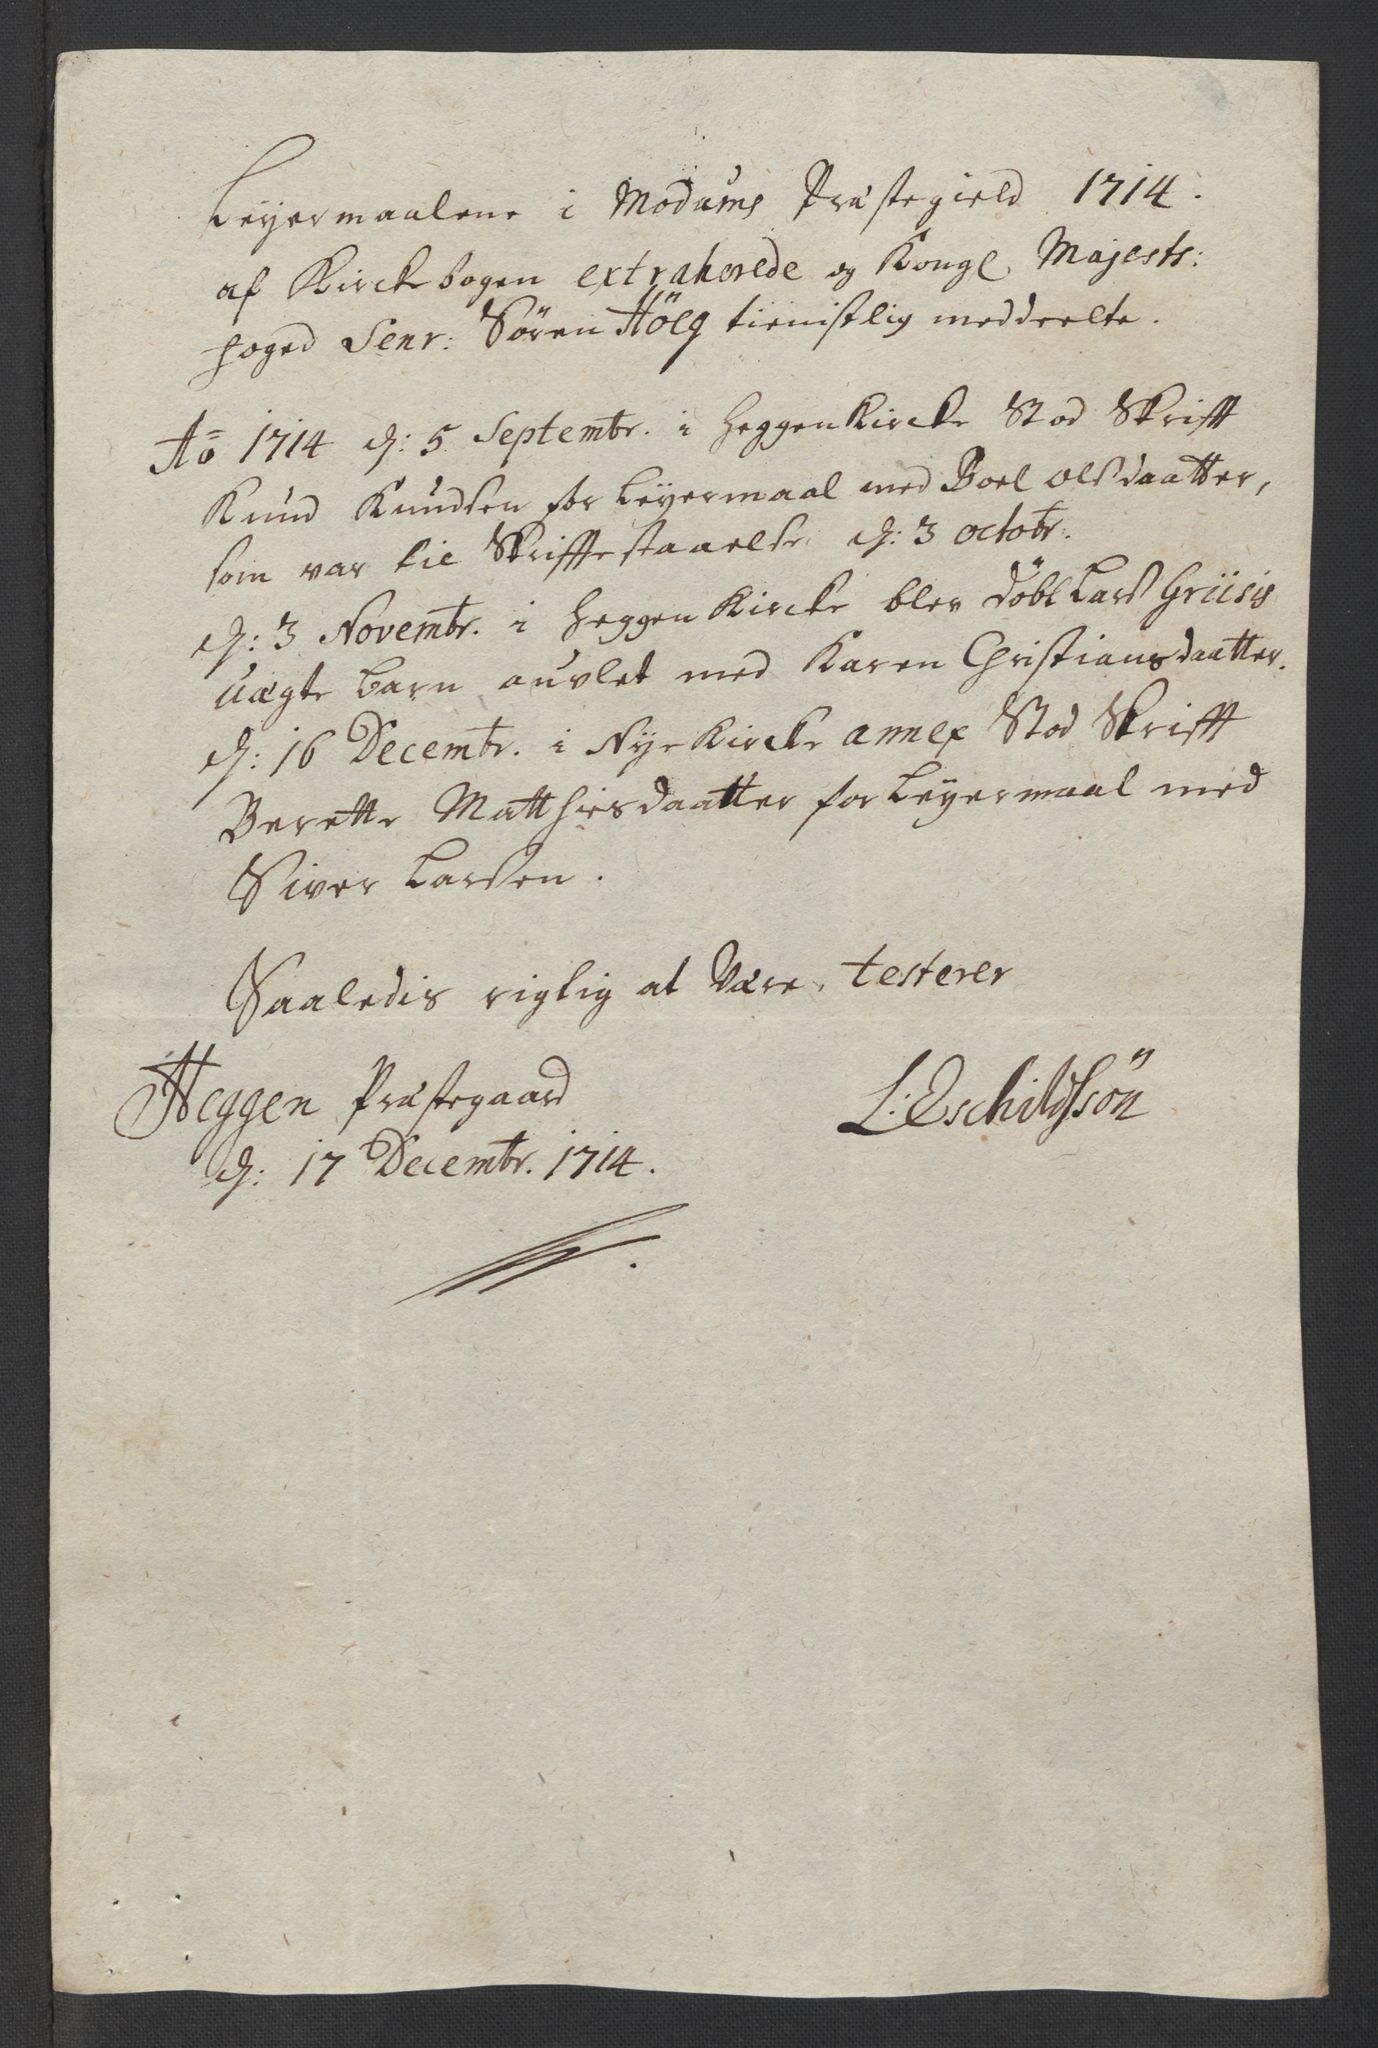 Leyermaalene i Modums Præstegield 1714.
af Kirckebogen extraherede og Kongl. Majests:
foged Senr: Sören Höeg tienistlig meddeelte.
Ao 1714 d: 5 Septembr. i Heggen Kircke Stod Skrifft
Knud Knudsen for Leyermaal med Boel Olsdaatter,
som var til Skrifftestaaelse d: 3 octobr.
d: 3 Novembr. i Heggen Kircke blev döbt Lars Griisis
uægte barn auvlet med Karen Christiansdaatter.
d: 16 Decembr. i Nye Kircke annex Stod Skrifft
Berette Matthisdaatter for Leyermaal med
Siver Larsen.
Saaledis rigtig at være, testerer
Heggen Præstegaard
L: Eschildssön
d: 17 Decembr. 1714.